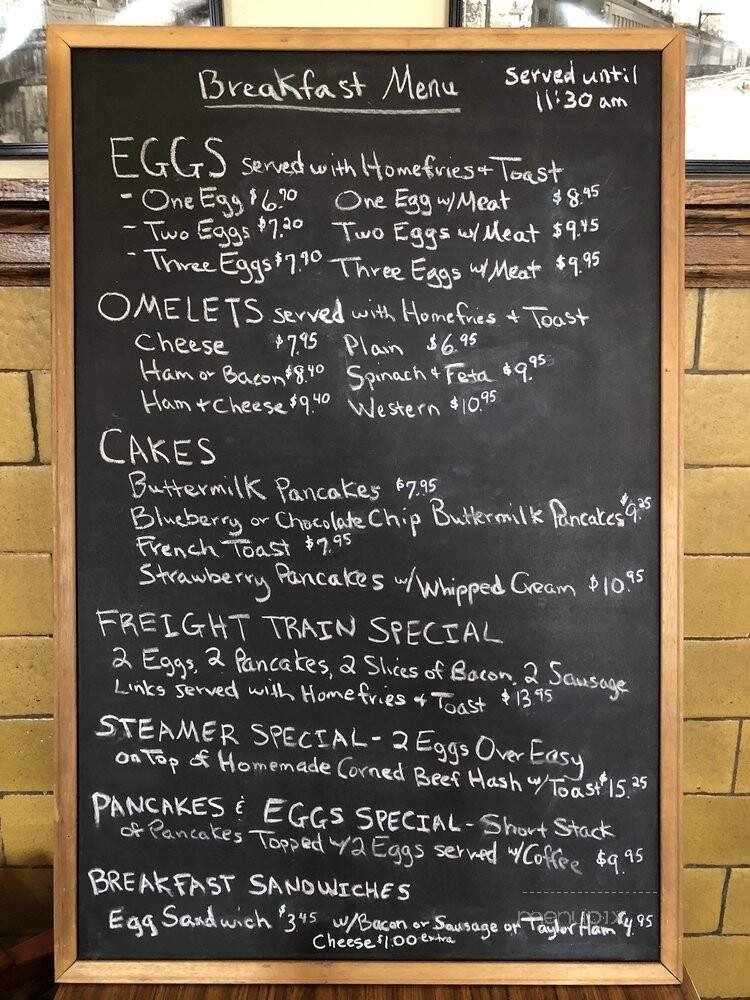 Breakfast Menu
served until
11:30 am
EGGS served with Homefries + Toast
- One Egg $6.90 One Egg w/Meat $8.95
- Two Eggs $7.20 Two Eggs w/Meat $9.45
- Three Eggs $7.90 Three Eggs w/Meat $9.95
OMELETS served with Homefries + Toast
Cheese $7.95 Plain $6.95
Ham or Bacon $8.40 Spinach + Feta $9.95
Ham + Cheese $9.40 Western $10.95
CAKES
Buttermilk Pancakes $7.95
Blueberry or Chocolate Chip Buttermilk Pancakes $9.25
French Toast $7.95
Strawberry Pancakes w/Whipped Cream $10.95
FREIGHT TRAIN SPECIAL
2 Eggs, 2 Pancakes, 2 Slices of Bacon, 2 Sausage
Links served with Homefries + Toast $13.95
STEAMER SPECIAL - 2 Eggs Over Easy
on Top of Homemade Corned Beef Hash w/Toast $15.25
PANCAKES & EGGS SPECIAL - Short Stack
of Pancakes Topped w/2 Eggs served w/Coffee $9.95
BREAKFAST SANDWICHES
Egg Sandwich $3.45 w/Bacon or Sausage or Taylor Ham $4.95
Cheese $1.00 extra
menupix